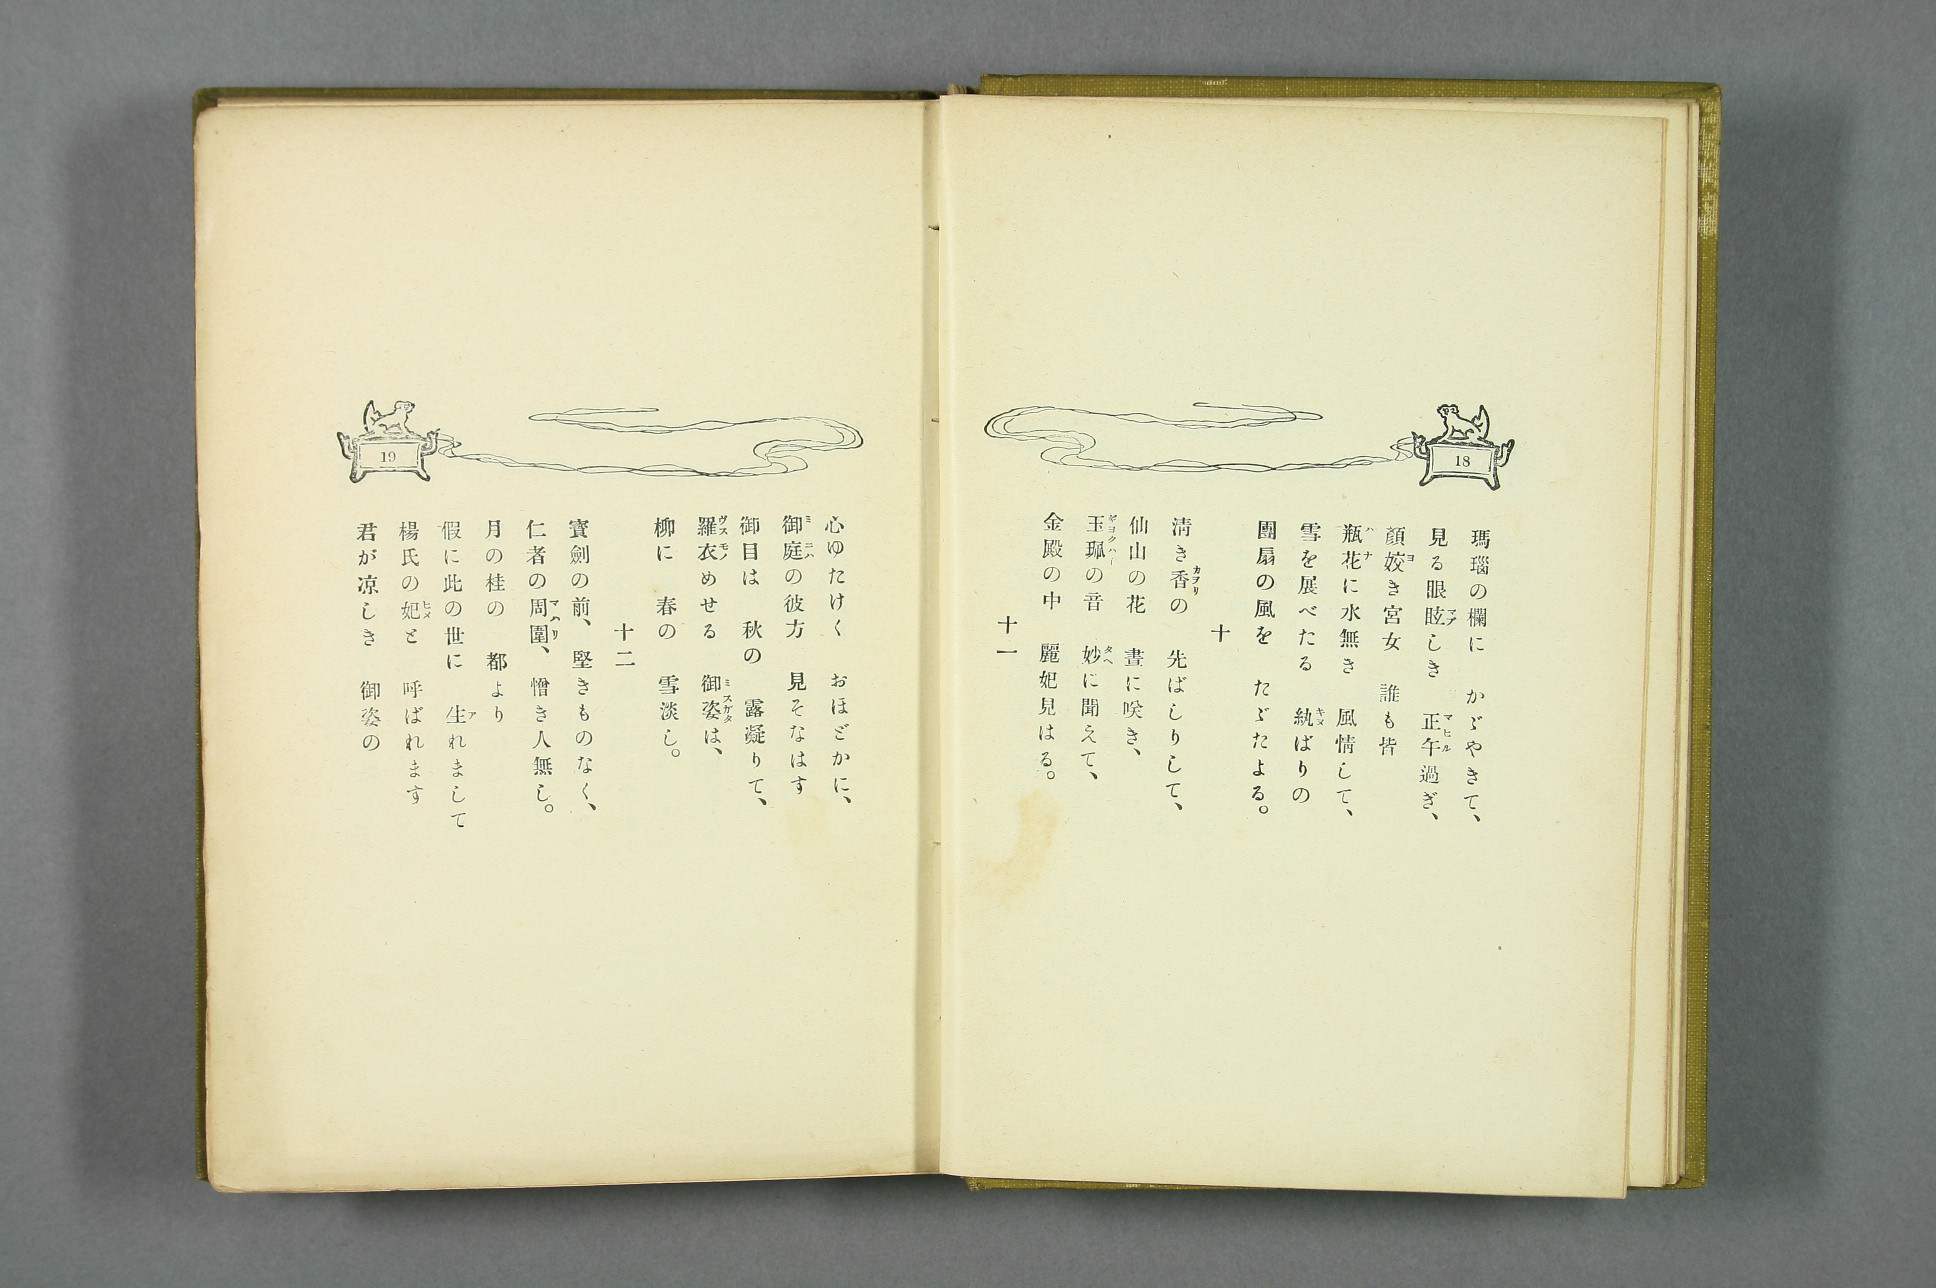 18
瑪瑙の欄に　かゞやきて、
見る眼眩しき　正午過ぎ、
顏姣き宮女　誰も皆
瓶花に水無き　風情して、
雪を展べたる　紈ばりの
團扇の風を　たゞたよる。
十
淸き香の　先ばしりして、
仙山の花　晝に咲き、
玉珮の音　妙に聞えて、
金殿の中　麗妃見はる。
十一
19
心ゆたけく　おほどかに、
御庭の彼方　見そなはす
御目は　秋の　露凝りて、
羅衣めせる　御姿は、
柳に　春の　雪淡し。
十二
寳劍の前、堅きものなく、
仁者の周圍、憎き人無し。
月の桂の　都より
假に此の世に　生れまして
楊氏の妃と　呼ばれます
君が凉しき　御姿の